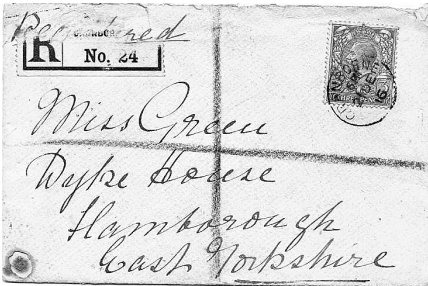 Registered
R
No. 24
Miss Green
Dyke House
Flamborough
East Yorkshire